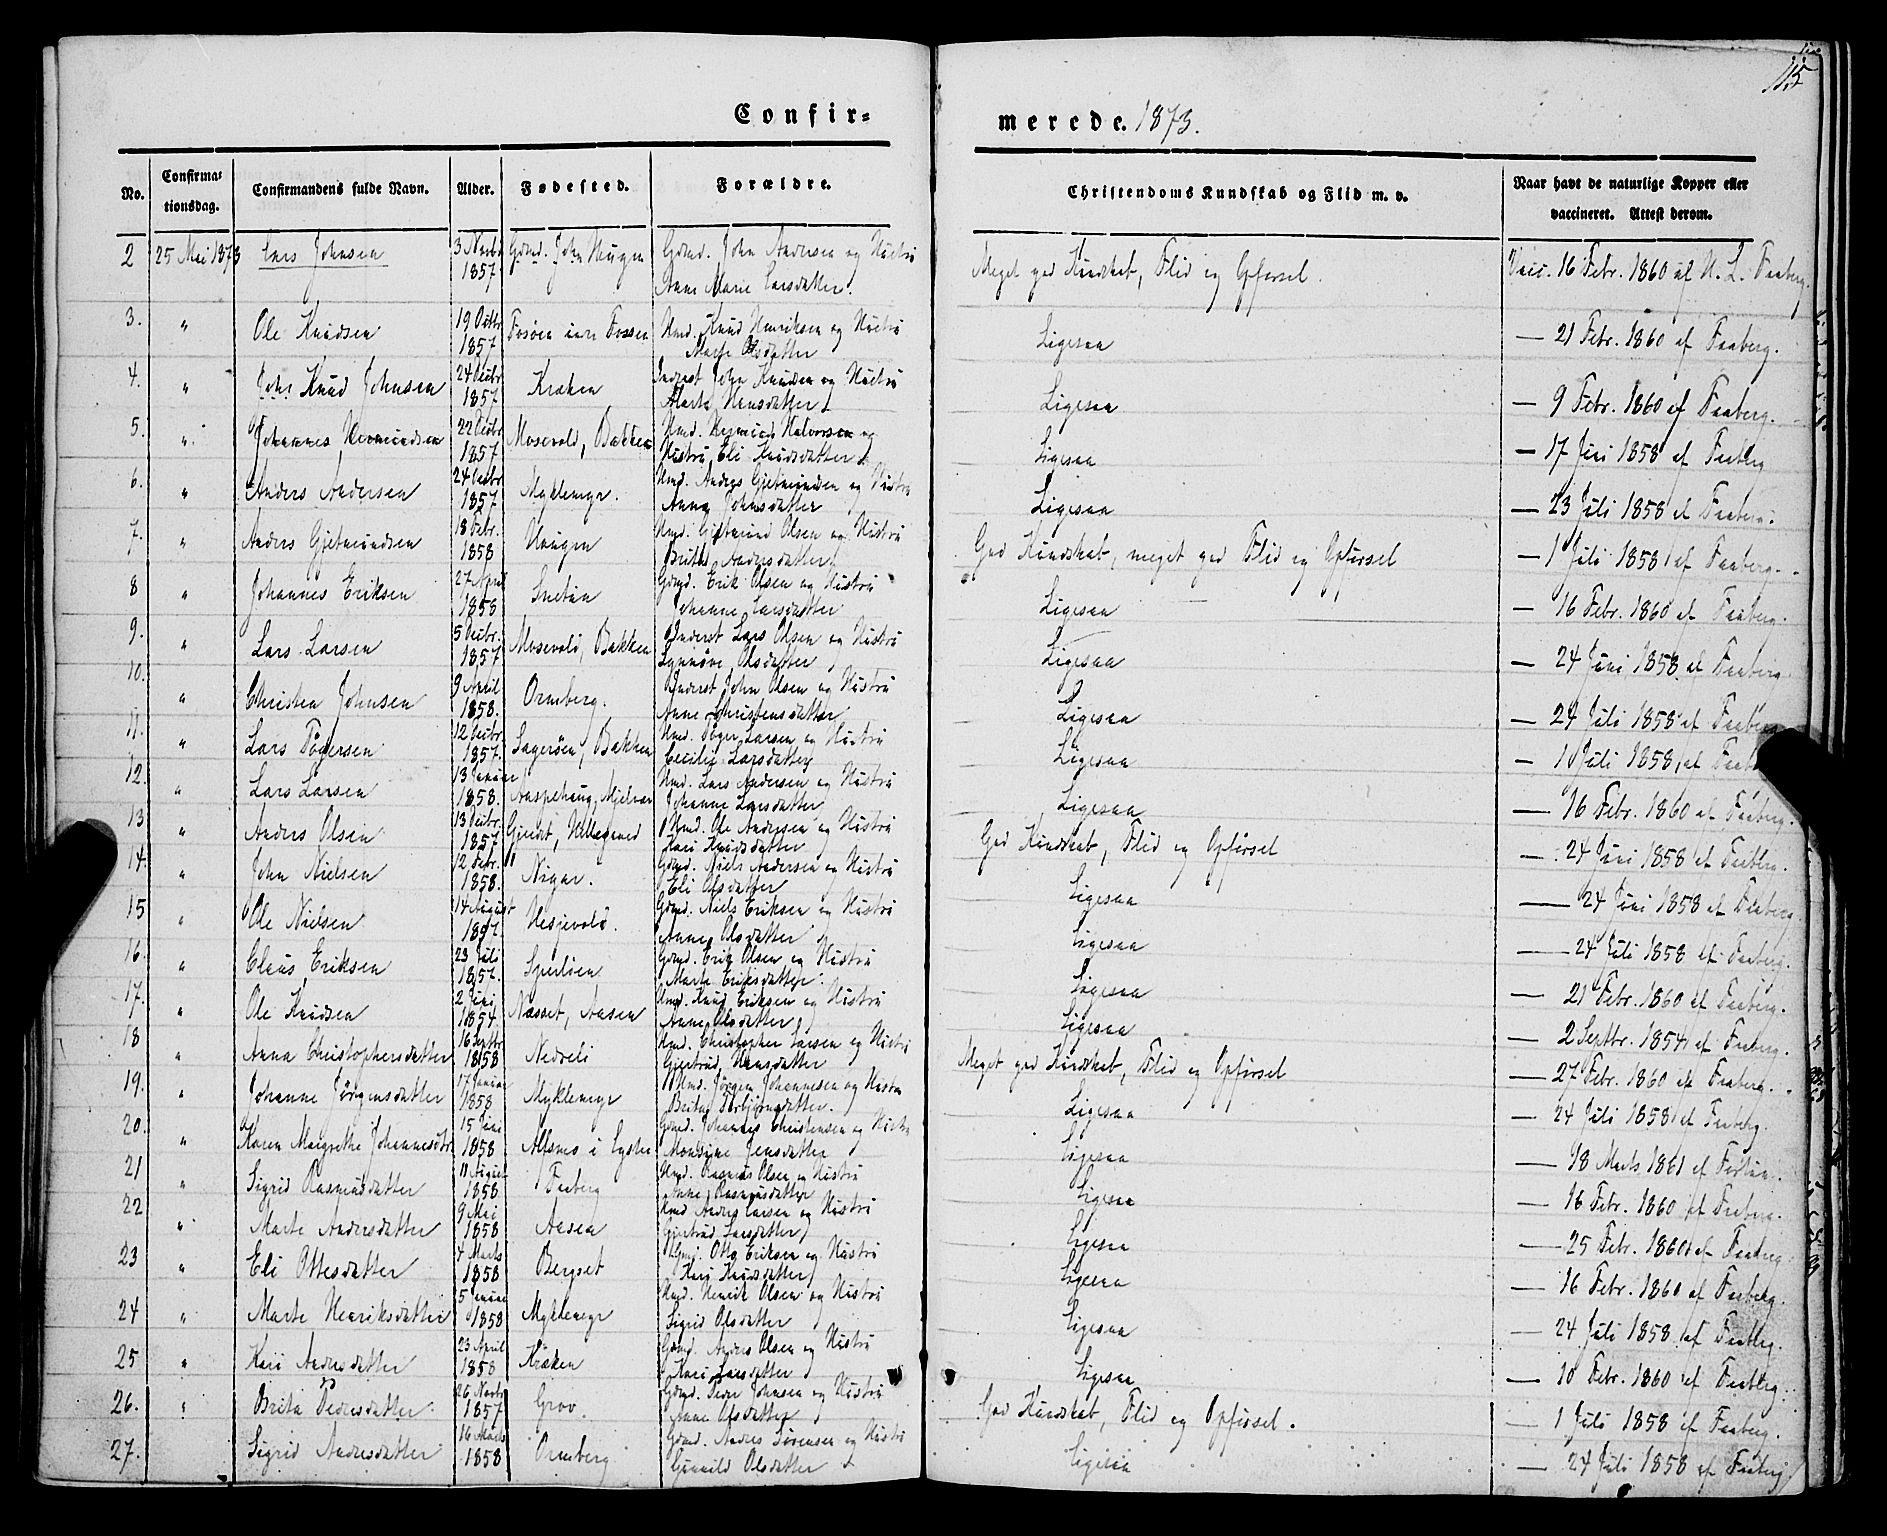 115
Confir-
merede. 1873.
No.
Confirma-
tionsdag.
Confirmandens fulde Navn.
Alder.
Fødested.
Forældre.
Christendoms Kundskab og Flid m. v.
Naar havt de naturlige Kopper eller
vaccineret. Attest derom.
2 25 Mai 1873 Lars Johnsen 3 Novbr 1857 Gdmd. John Haugen Gdmd. John Andersen og Hustru
Anne Marie Larsdatter. Meget god Kundskab, Flid og Opførsel. Vacc. 16 Febr. 1860 af N. L. Faaberg.
3. " Ole Knudsen 19 Octbr 1857 Fosøen Fossen Hmd. Knud Henriksen og Hustru
Marte Olsdatter Ligesaa — 21 Febr. 1860 af Faaberg.
4. " John Knud Johnsen 24 Decbr 1857 Kræken Inderst John Knudsen og Hustru
Marta Hansdatter Ligesaa — 9 Febr. 1860 af Faaberg.
5. " Johannes Hermundsen 22 Decbr 1857 Mosevold, Bakken Hmd. Hermund Halvorsen og
Hustru Eli Knudsdatter Ligesaa — 17 Juni 1858 af Faaberg
6. " Anders Andersen 24 Octbr 1857 Myklemyr. Hmd. Anders Gjetmundsen og Hustru
Anna Johnsdatter Ligesaa — 23 Juli 1858 af Faaberg.
7. " Anders Gjetmundsen 18 Febr. 1858 Haugen Hmd. Gjetmund Olsen og Hustru
Britha Andersdatter God Kundskab, meget god Flid og Opførsel — 1 Juli 1858 af Faaberg.
8 " Johannes Eriksen 27 April 1858 Snetun Gdmd. Erik Olsen og Hustru
Johanne Larsdatter Ligesaa — 16 Febr. 1860 af Faaberg.
9. " Lars Larsen 5 Decbr. 1857 Mosevold, Bakken Inderst Lars Olsen og Hustru
Synnøve Olsdatter Ligesaa — 24 Juni 1858 af Faaberg
10. " Christen Johnsen 9 April 1858. Ormberg. Inderst John Olsen og Hustru
Anne Christensdatter Ligesaa — 24 Juli 1858 af Faaberg
11. " Lars Tøgersen 12 Decbr. 1857. Sagerøen, Bakken Hmd. Tøger Larsen og Hustru
Cecilie Larsdatter Ligesaa — 1 Juli 1858 af
12. " Lars Larsen 13 Januar 1858. Aaspehaug, Mjelvar Hmd. Lars Andersen og Hustru
Johanne Larsdatter Ligesaa — 16 Febr. 1860 af Faaberg.
13 " Anders Olsen 13 Decbr. 1857 Gjerdet, Hmd. Ole Andersen og Hustru
Kari Knudsdatter God Kundskab, Flid og Opførsel — 24 Juni 1858 af Faaberg.
14. " John Nielsen 12 Febr. 1858. Nigar. Gdmd. Niels Andersen og Hustru
Eli Olsdatter Ligesaa — 24 Juni 1858 af Faaberg
15 " Ole Nielsen 14 August 1857. Hesjevold. Gdmd. Niels Eriksen og Hustru
Anne Olsdatter Ligesaa — 24 Juli 1858 af Faaberg.
16. " Claus Eriksen 23 Juli 1857. Sperleen Gdmd. Erik Olsen og Hustru
Marte Eriksdatter. Ligesaa — 21 Febr. 1860 af Faaberg.
17. " Ole Knudsen 2 Juni 1854 Næsset, Aasen Hmd. Knud Eriksen og Hustru
Anne Olsdatter Ligesaa — 2 Septbr. 1854 af Faaberg.
18 " Anna Christophersdatter 16 Septbr 1858 Nedreli Hmd. Christopher Larsen og Hustru
Gjertrud Hansdatter Meget god Kundskab, Flid og Opførsel — 27 Febr. 1860 af Faaberg.
19. " Johanne Jørgensdatter 17 Januar 1858 Myklemyr Hmd. Jørgen Johannesen og Hustru
Brita Torbjørnsdatter. Ligesaa — 24 Juli 1858 af Faaberg.
20. " Karen Margrethe Johannesdtr. 15 Juni 1858 Alfsnes i Lyster Gdmd. Johannes Christensen og Hustru
Monsine Jensdatter Ligesaa — 18 Marts 1861 af Fortun.
21 " Sigrid Rasmusdatter 11 August 1858 Faaberg Hmd. Rasmus Olsen og Hustru
Anne Rasmusdatter Ligesaa — 16 Febr. 1860 af Faaberg.
22 " Marte Andersdatter 9 Mai 1858 Aasen Hmd Anders Larsen og Hustru
Gjertrud Larsdatter Ligesaa — 25 Febr. 1860 af Faaberg.
23 " Eli Ottesdatter 4 Marts 1858 Bergset Gdmd. Otto Eriksen og Hustru
Kari Knudsdatter Ligesaa — 16 Febr. 1860 af Faaberg.
24 " Marte Henriksdatter 5 Januar 1858 Myklemyr Hmd. Henrik Olsen og Hustru
Sigrid Olsdatter Ligesaa — 24 Juli 1858 af Faaberg.
25 " Kari Andersdatter 23 April 1858 Kræken Gdmd. Anders Olsen og Hustru
Kari Larsdatter Ligesaa — 10 Febr. 1860 af Faaberg.
26. " Brita Pedersdatter. 26 Novbr 1857 Grov. Gdmd. Peder Johnsen og Hustru
Anne Olsdatter God Kundskab, Flid og Opførsel. — 1 Juli 1858 af Faaberg.
27. Sigrid Andersdatter 16 Marts 1858 Ormberg Gdmd. Anders Sørensen og Hustru
Gunnild Olsdatter Ligesaa — 24 Juli 1858 af Faaberg